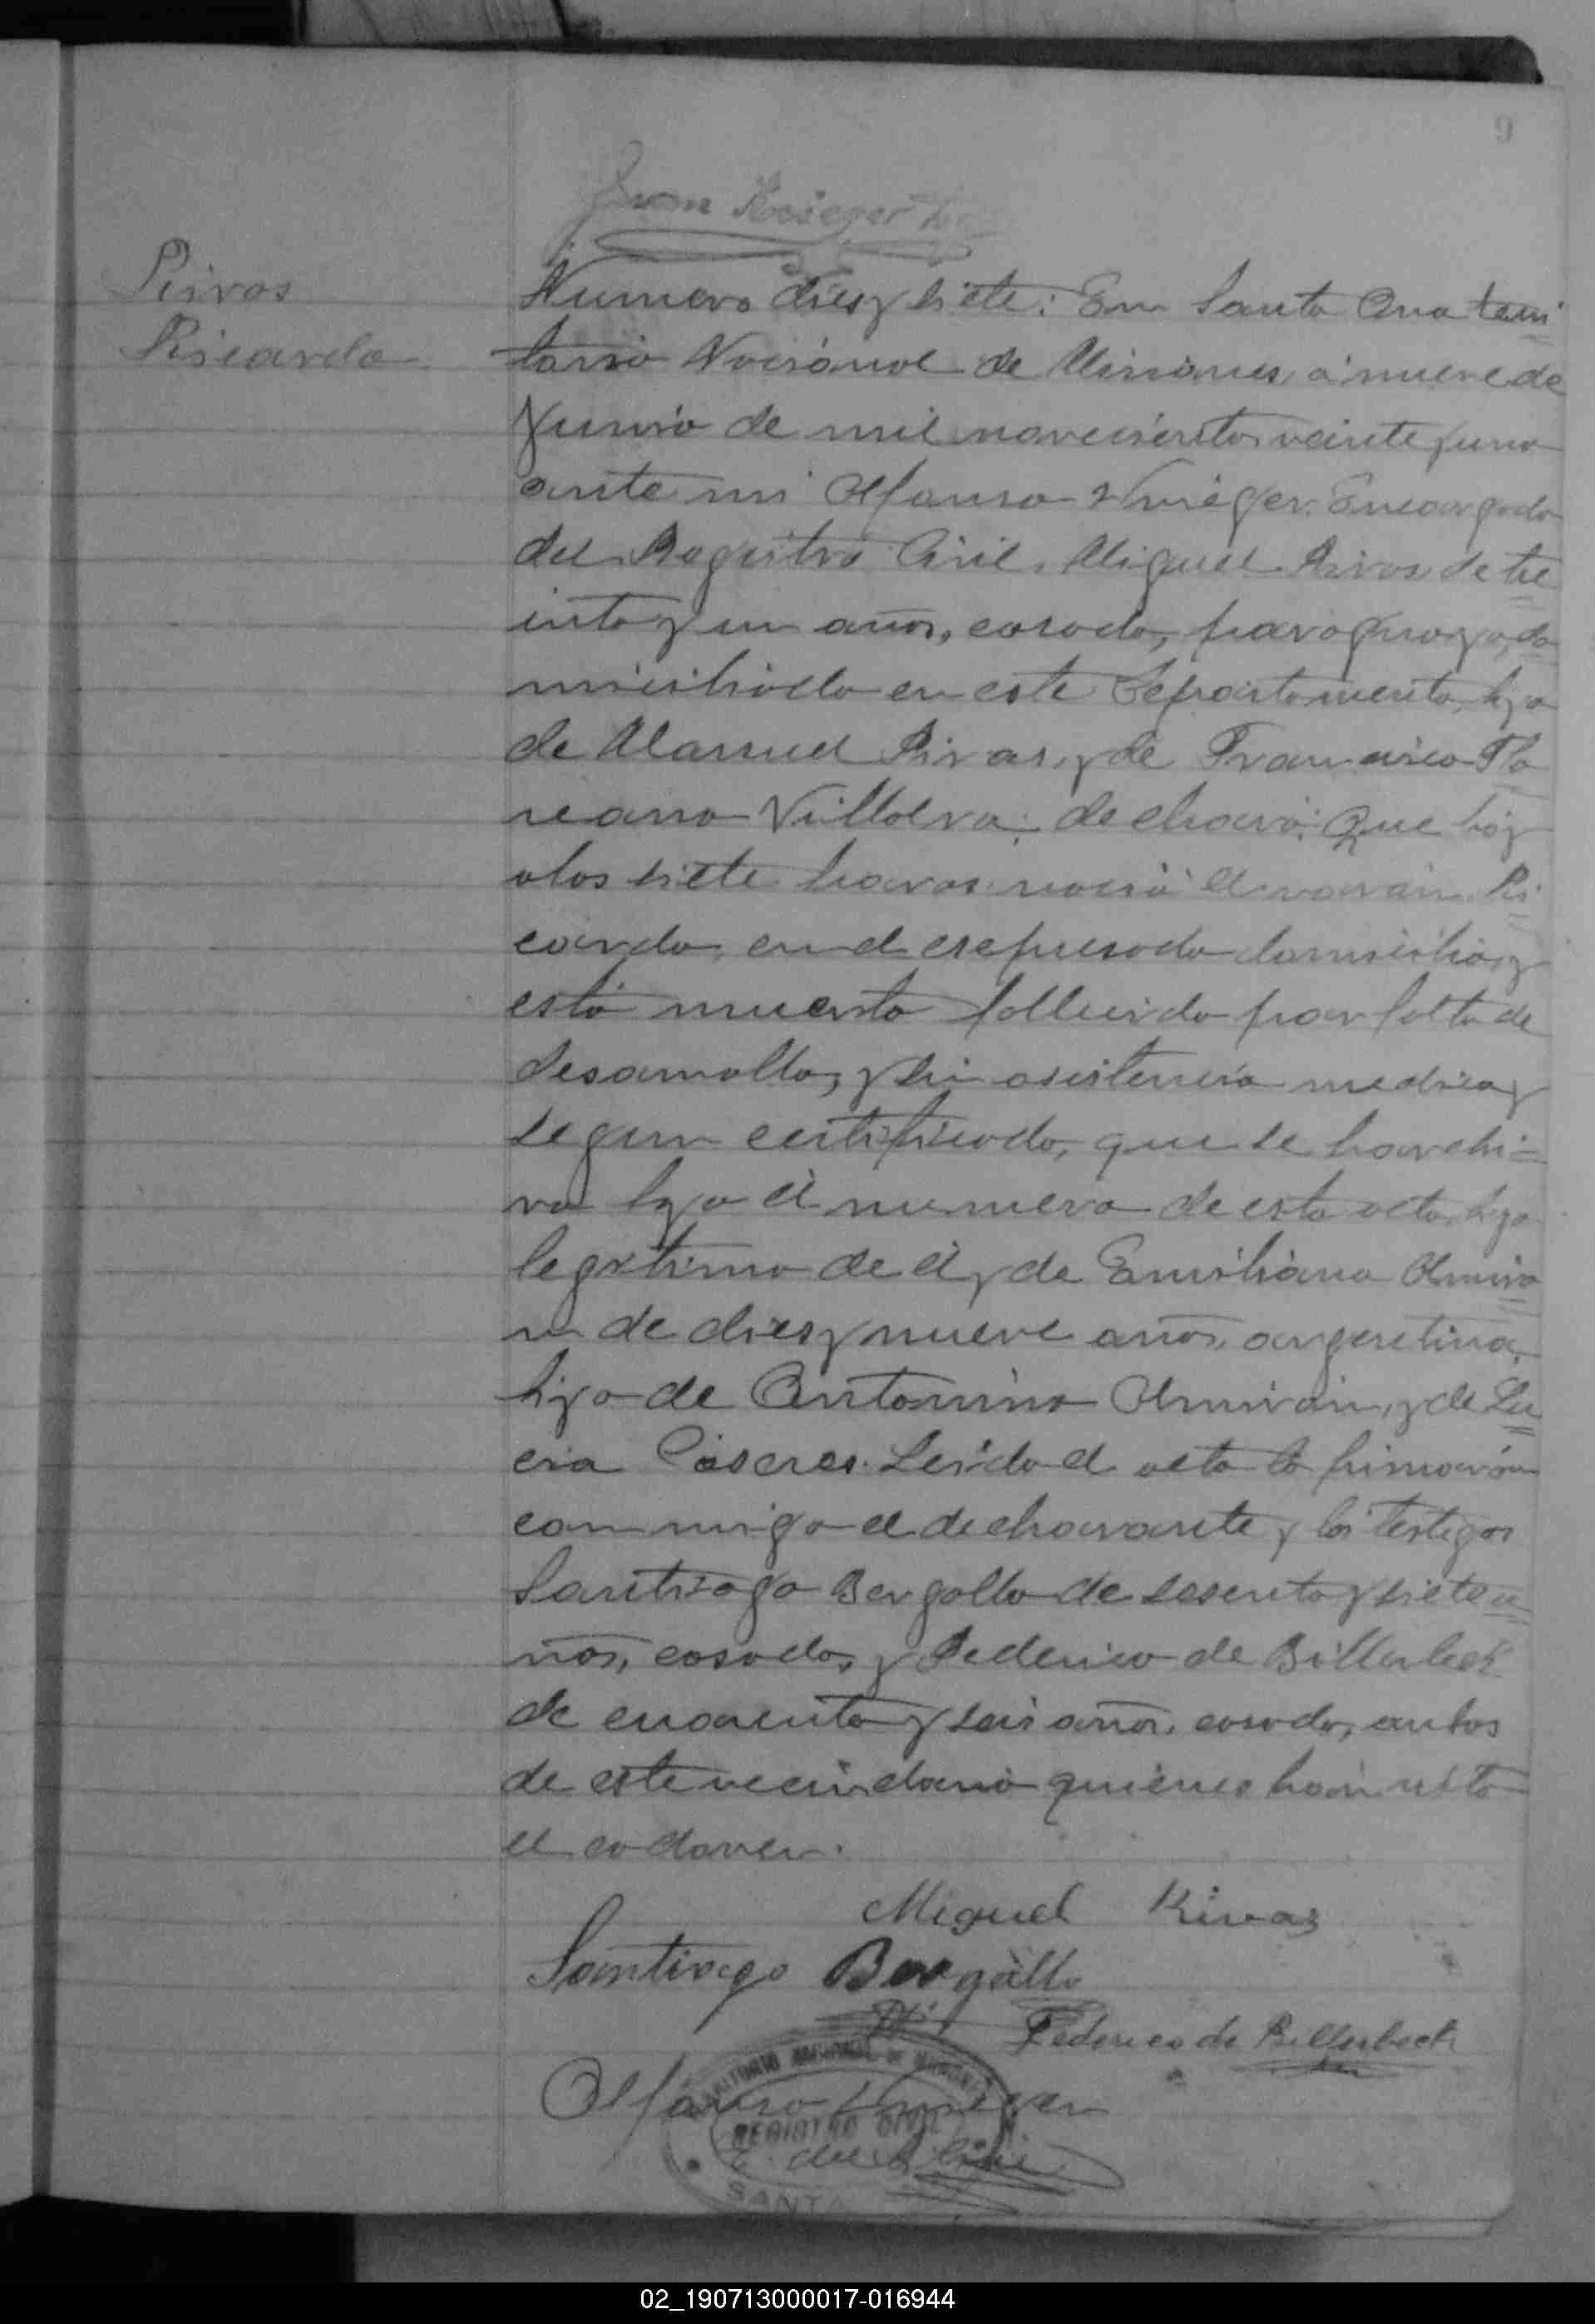 9
Juan Krieger
Rivas
Ricardo
Numero dies y siete: En Santa Ana terri
torio Nacional de Misiones, á nueve de
Junio de mil novecientos veinte y uno
ante mi Alfonso Krieger Encargado
del Registro Civil, Miguel Rivas, de tre
inta y un años, casado, paraguayo, do
miciliado en este Departamento, hijo
de Manuel Rivas, y de Francisca Flo
reana Villalva; declaró: Que hoy
alas siete horas nació el varón Ri
cardo, en el expresado domicilio, y
está muerto fallecido por falta de
desarrollo, y sin asistencia medica, y
segun certificado, que se harchi=
va bajo el numero de esta acta, hijo
legitimo de él, y de Emiliana Almiro
n de dies y nueve años, argentina,
hija de Antonino Almiron, y de Lu
cia Càseres. Leida el acta la firmarón
conmigo el declarante y los testigos
Santiago Bergallo de sesenta y siete a
ños, casado, y Federico de Billerbeck
de cuarenta y seis años, casado, anbos
de este vecindario quienes han visto
el cadaver.
Miguel Rivas
Santiago Bergallo
Federico de Billerbeck
Alfonso Krieger
E. del R. Civil
TERRITORIO NACIONAL DE MISIONES
REGISTRO CIVIL
SANTA
02_190713000017-016944